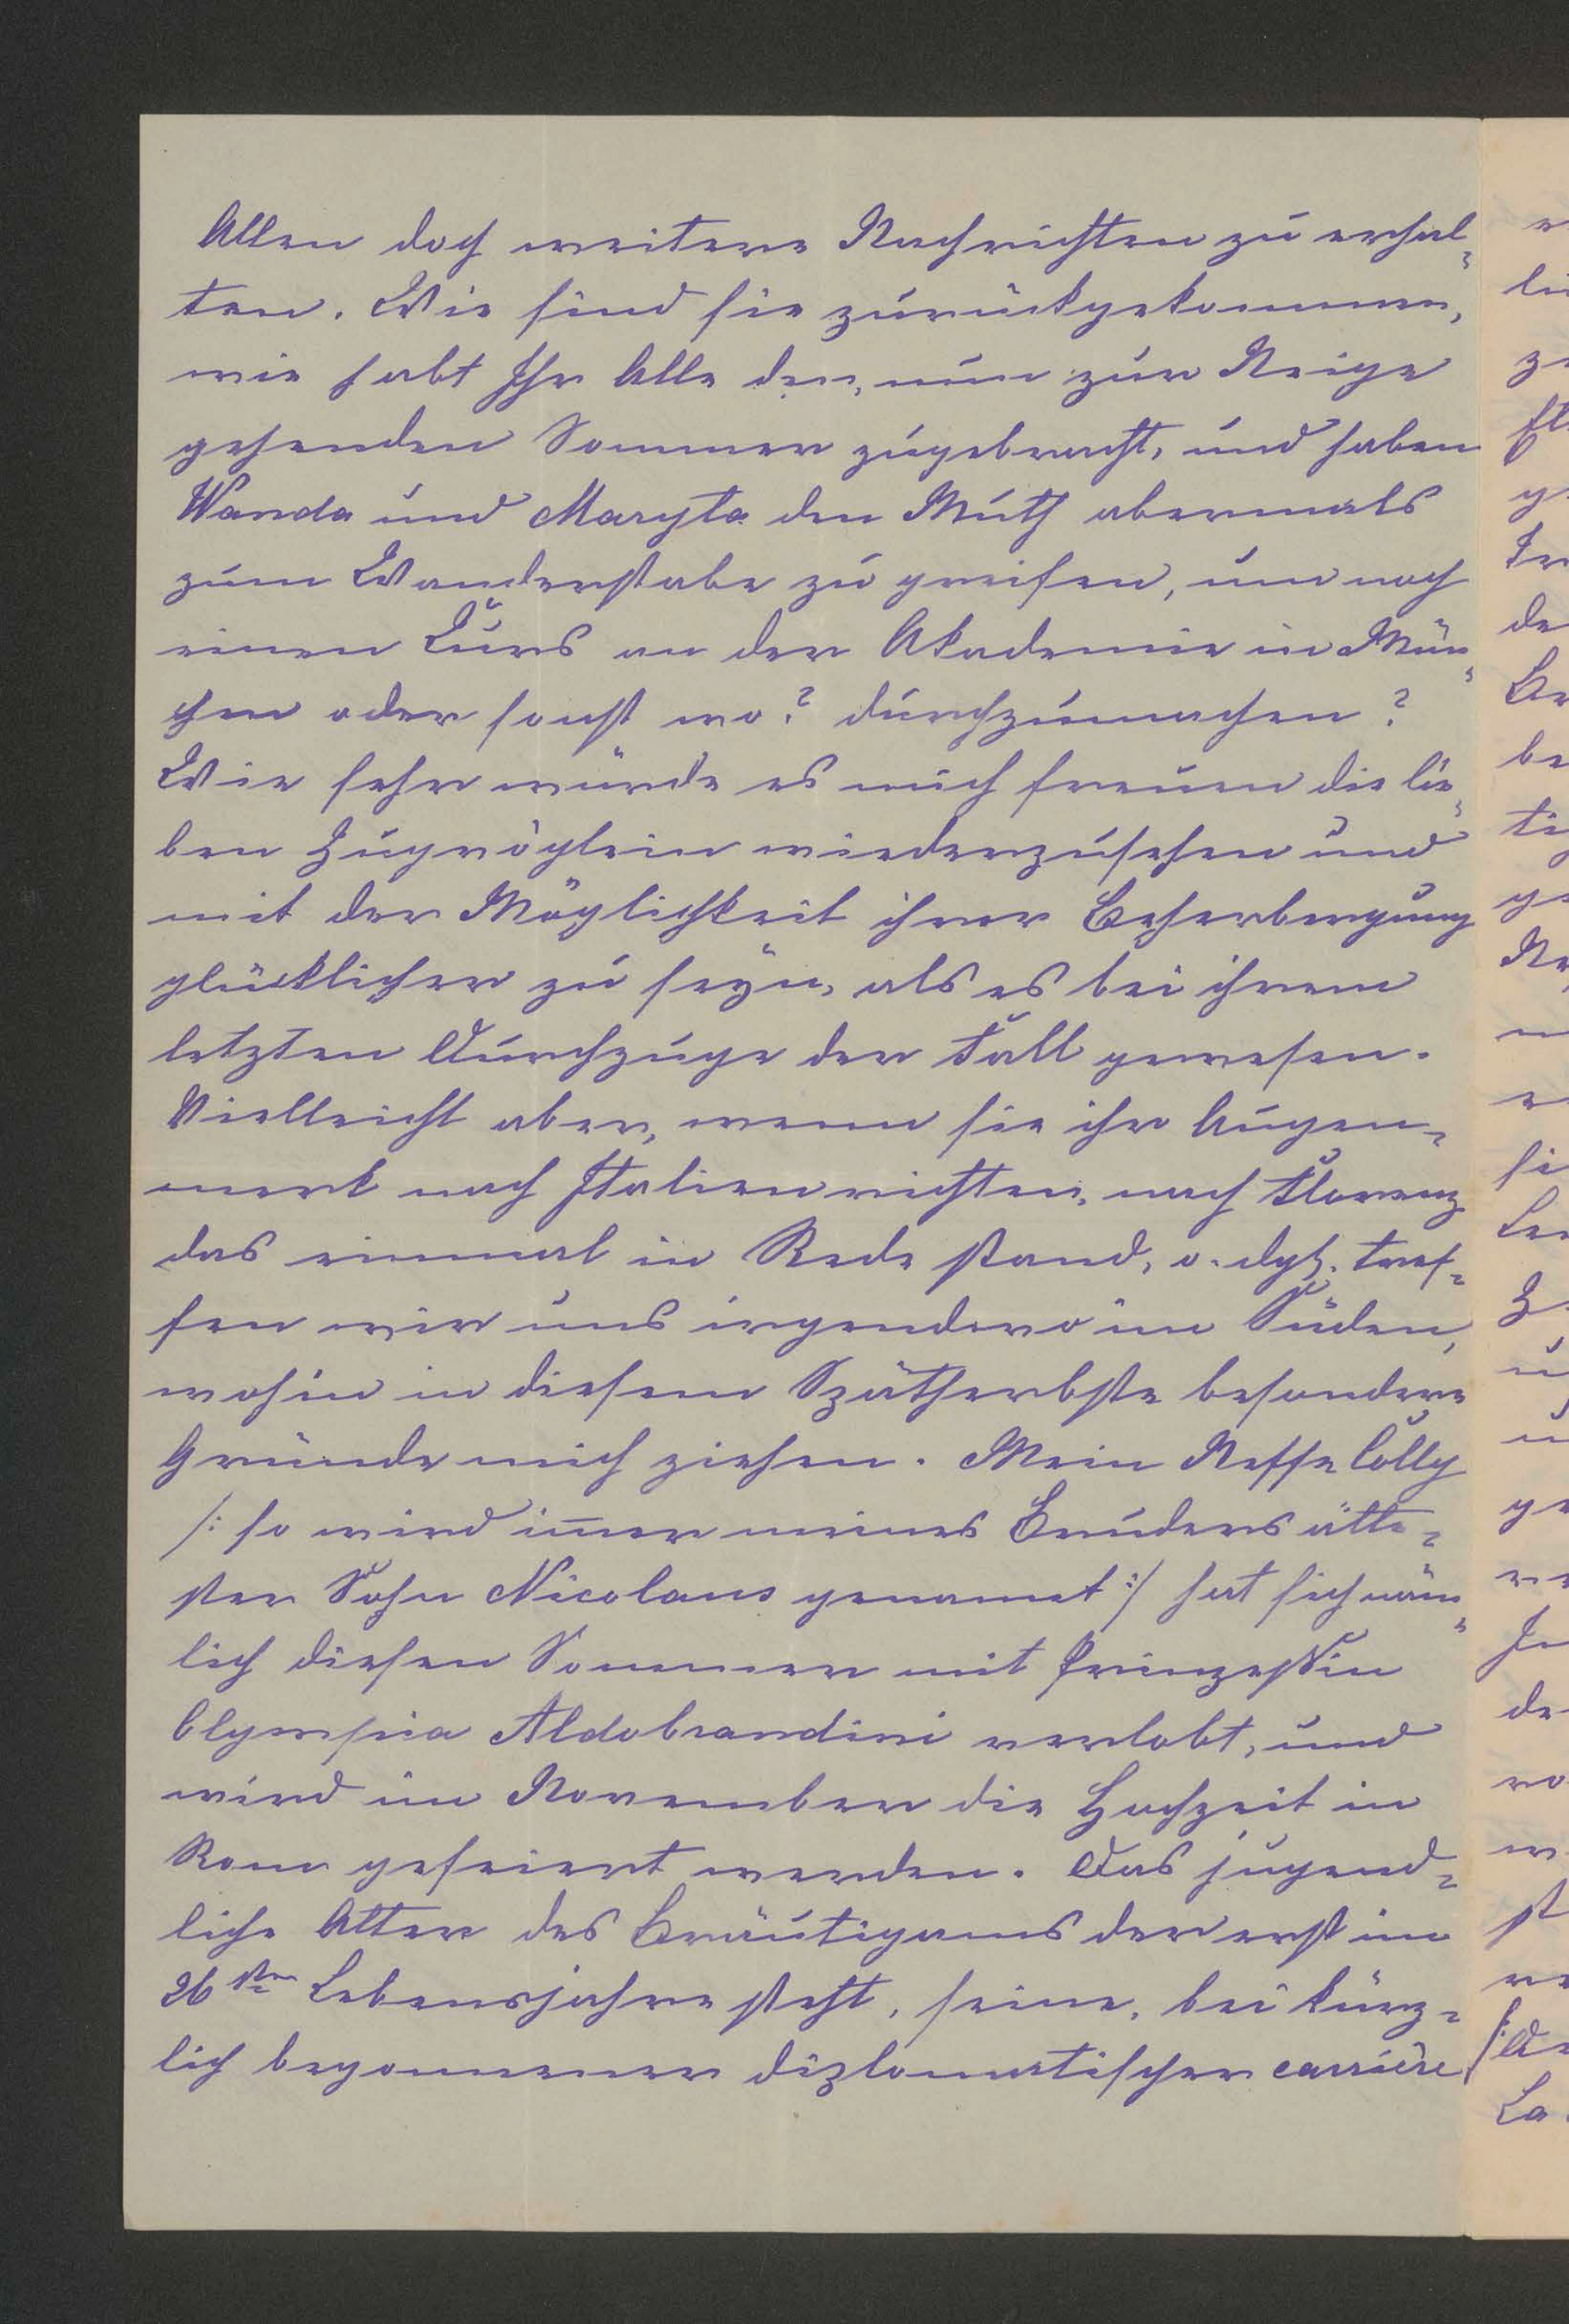 Allen doch weitere Nachrichten zu erhal-
ten. Wie sind sie zurückgekommen,
wie habt Ihr Alle den, nun zur Neige
gehenden Sommer zugebracht, und haben
Wanda und Maryta den Muth abermals
zum Wanderstabe zu greifen, um noch
einen Curs an der Akademie in Mün-
chen oder sonst wo? durchzumachen?
Wie sehr würde es mich freuen die lie-
ben Zugvöglein wiederzusehen und
mit der Möglichkeit ihrer Beherbergung
glücklicher zu seyn, als es bei ihrem
letzten Durchzuge der Fall gewesen.
Vielleicht aber, wenn sie ihr Augen-
merk nach Italien richten, nach Florenz
das einmal in Rede stand, o. dgl. tref-
fen wir uns irgendwo im Süden,
wohin in diesem Spätherbste besondere
Gründe mich ziehen. Mein Neffe Colly
/: so wird im̅er meines Bruders älte-
ster Sohn Nicolaus genannt :/ hat sich näm-
lich diesen Sommer mit Prinzessin
Olympia Aldobrandini verlobt, und
wird im November die Hochzeit in
Rom gefeiert werden. Das jugend-
liche Alter des Bräutigams der erst im
26sten Lebensjahre steht, seine, bei kürz-
lich begonnener diplomatischer carrière